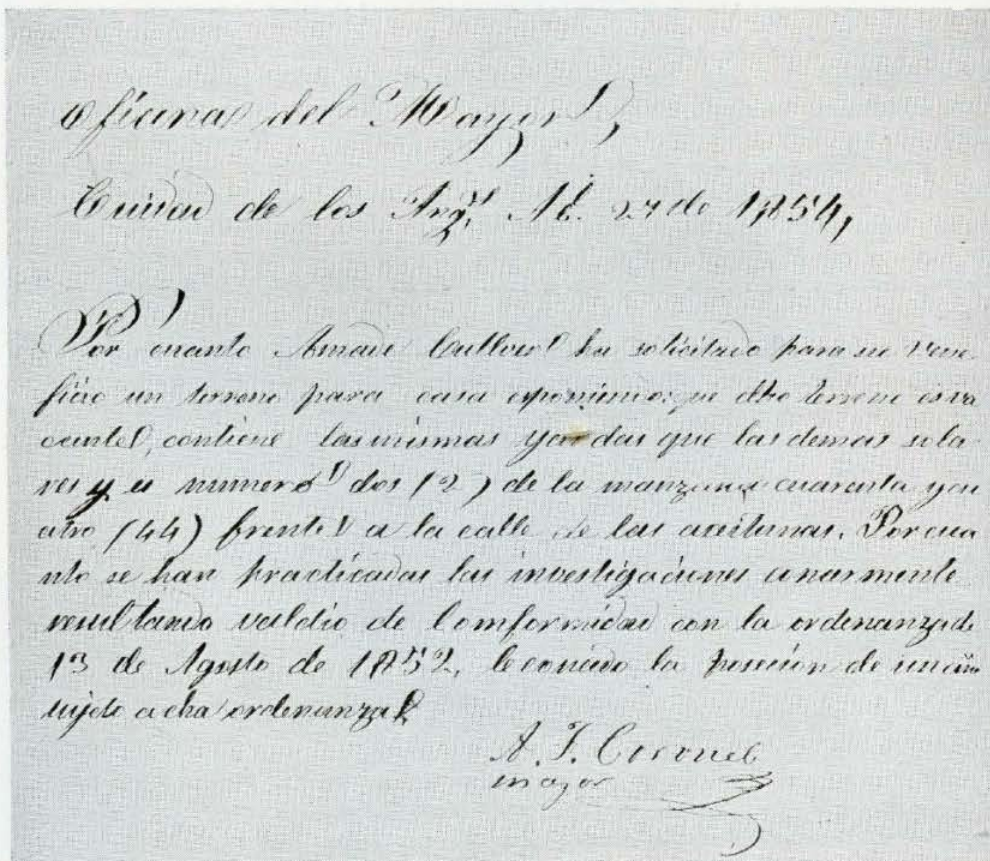 Oficina del Mayor,
Ciudad de los Angs. Ab. 27 de 1854,
Por cuanto Amade ha solicitado para su vene
ficio un terreno para casa esponiendo: que dho terreno es va
cante, contiene las mismas yardas que las demas sola
res y es numero dos (2) de la manzana cuarenta y cu
atro (44) frente a la calle de las aceitunas. Por cua
nto se han practicadas las investigaciones
resultando valdio de Comformidad con la ordenanza de
13 de Agosto de 1852, le consedo la posecion de un año
sujeto a dha ordenanza
A. F. Coronel
mayor